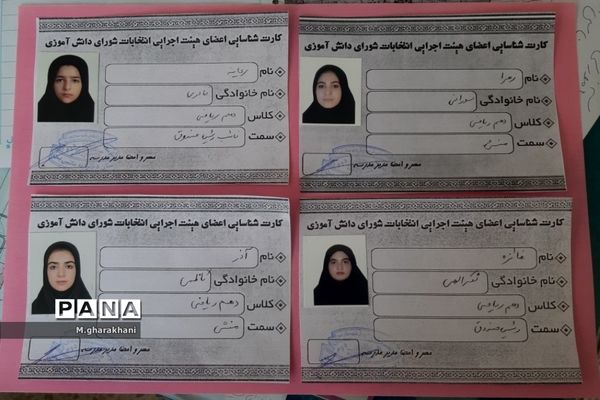 کارت شناسایی اعضای هیئت اجرایی انتخابات شورای دانش آموزی
نام زهرا
نام خانوادگی
کلاس دهم ریاضی
سمت
مهر و امضا مدیر مدرسه
کارت شناسایی اعضای هیئت اجرایی انتخابات شورای دانش آموزی
نام
نام خانوادگی
کلاس دهم ریاضی
سمت نائب رئیس صندوق
مهر و امضا مدیر مدرسه
کارت شناسایی اعضای هیئت اجرایی انتخابات شورای دانش آموزی
نام فائزه
نام خانوادگی شکرالهی
کلاس دهم ریاضی
سمت رئیس صندوق
مهر و امضا مدیر مدرسه
کارت شناسایی اعضای هیئت اجرایی انتخابات شورای دانش آموزی
نام آذر
نام خانوادگی
کلاس دهم ریاضی
سمت منشی
مهر و امضا مدیر مدرسه
PANA
M.gharakhani